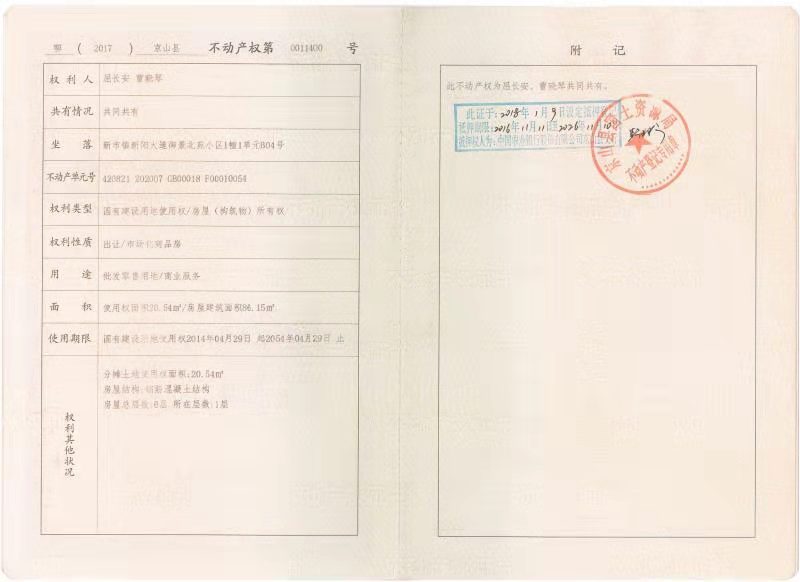 鄂 ( 2017 ) 京山县 不动产权第 0011400 号
权利人 屈长安 曹晓琴
共有情况 共同共有
坐落 新市镇新阳大道御景北苑小区1幢1单元B04号
不动产单元号 420821 202007 GB00018 F00010054
权利类型 国有建设用地使用权/房屋(构筑物)所有权
权利性质 出让/市场化商品房
用途 批发零售用地/商业服务
面积 使用权面积20.54㎡/房屋建筑面积86.15㎡
使用期限 国有建设用地使用权2014年04月29日 起2054年04月29日 止
权利其他状况
分摊土地使用权面积:20.54㎡
房屋结构:钢筋混凝土结构
房屋总层数:6层 所在层数:1层
附记
此不动产权为屈长安、曹晓琴共同共有。
此证于:2018年11月9日设定抵押
抵押期限:2016年11月11日至2026年11月10
抵押权人为:中国农业银行股份有限公司京山
京山县国土资源局
不动产登记专用章